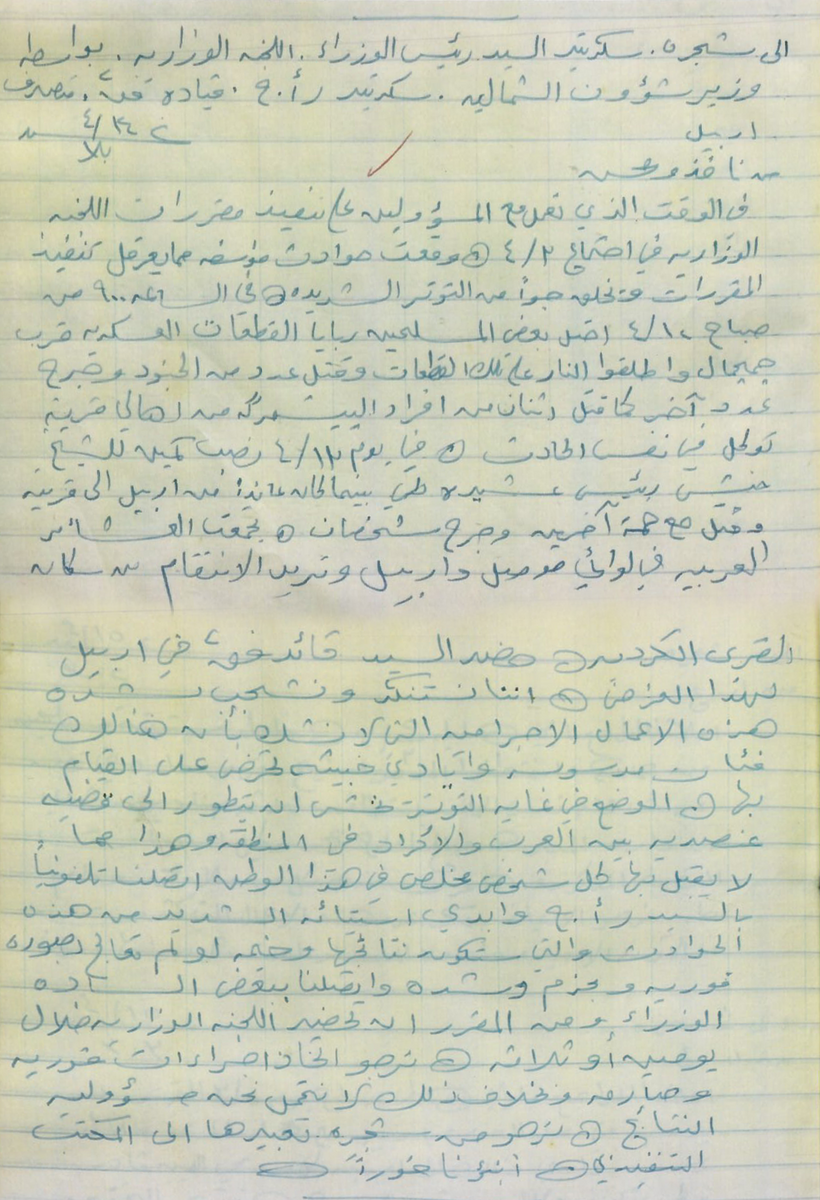 الى شجره. سكرتير السيد رئيس الوزراء. اللجنه الوزاريه. بواسطه
وزير شؤون الشماليه. سكرتير ر.أ.ج. قيادة فق٢. متصرف
اربيل
٤/٢٤
بلا
من نافذ ومحسن
في الوقت الذي نعمل مع المسؤولين على تنفيذ مقررات اللجنه
الوزاريه في اجتماع ٤/٢ ه وقعت حوادث مؤسفه مما يعرقل تنفيذ
المقررات وتخلق جواً من التوتر الشديد ه في الساعه ٩٠٠ من
صباح ٤/١٢ احتل بعض المسلحين ربايا القطعات العسكريه قرب
جمجمال واطلقوا النار على تلك القطعات وقتل عدد من الجنود وجرح
عدد آخر كما قتل اثنان من افراد البيشمركه من اهالي قرية
في نفس الحادث ه في يوم ٤/١٣ نصب كمين للشيخ
حنش رئيس عشيره طي بينما كان عائداً من اربيل الى قريته
وقتل مع خمسة آخرين وجرح شخصان ه تجمعت العشائر
العربيه في لوائي موصل واربيل وتريد الانتقام من سكان
القرى الكرديه ه حضر السيد قائد فق٢ في اربيل
لهذا الغرض ه اننا نستنكر ونشجب بشده
هذه الاعمال الاجراميه التي لا نشك بأن هنالك
فئات مدسوسه وايادي خبيثه تحرض على القيام
بها ه الوضع في غايه التوتر نخشى ان يتطور الى قضيه
عنصريه بين العرب والاكراد في المنطقه وهذا مما
لا يقبل بها كل شخص مخلص في هذا الوطن اتصلنا تلفونياً
بالسيد ر.أ.ج وابدى استيائه الشديد من هذه
الحوادث والتي ستكون نتائجها وخيمه لو لم تعالج بصوره
فوريه وبحزم وشده واتصلنا ببعض الساده
الوزراء ومن المقرر ان تحضر اللجنه الوزاريه خلال
يومين أو ثلاثه ه نرجو اتخاذ اجراءات فوريه
وصارمه وبخلاف ذلك لا نتحمل نحن مسؤوليه
النتائج ه نرجو من شجره تعبيرها الى المكتب
التنفيذي ه انبؤنا فوراً ه